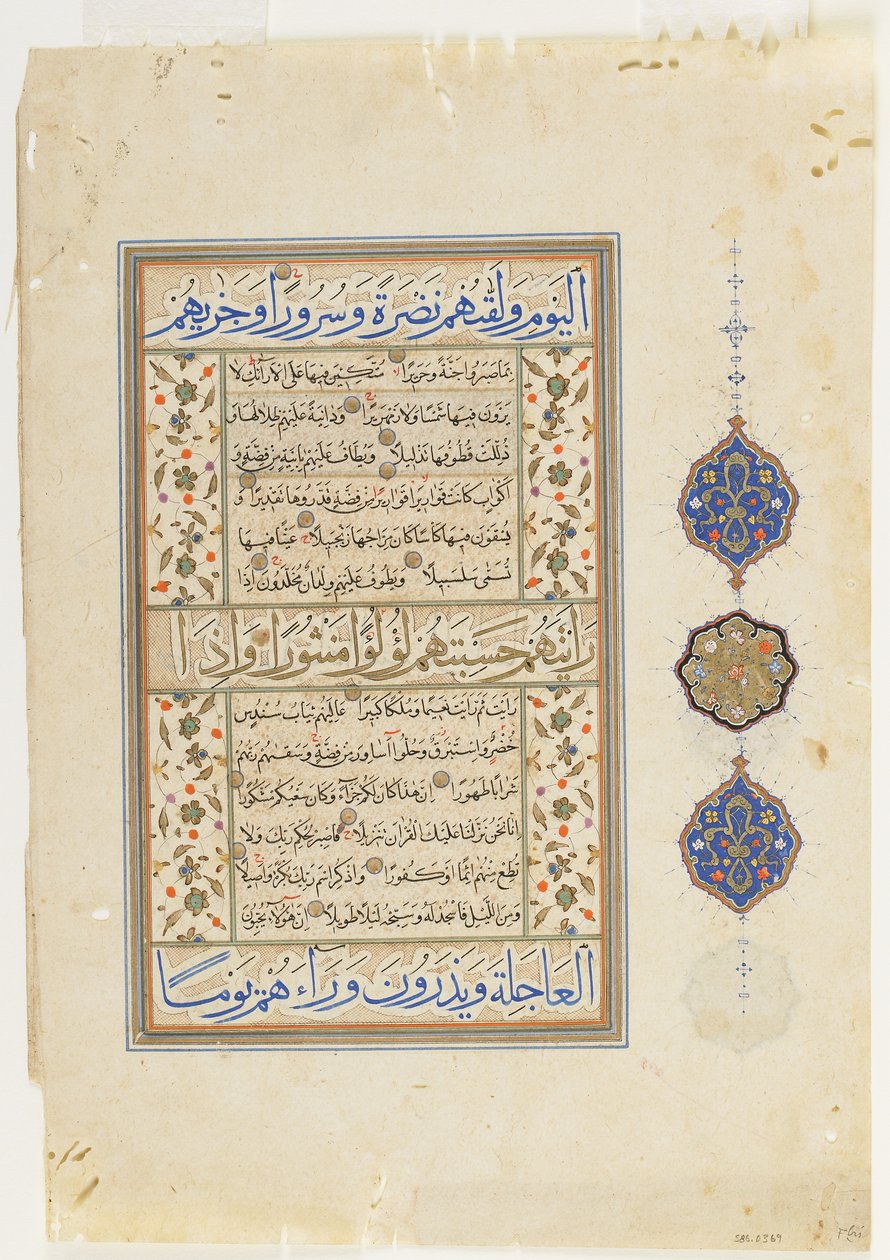 اليَوْمِ وَلَقّٰىهُمْ نَضْرَةً وَسُرُورًا وَجَزٰيهُمْ
بِمَا صَبَرُوا جَنَّةً وَحَرِيرًا مُتَّكِـِٔينَ فِيهَا عَلَى الْاَرَائِكِ لَا
يَرَوْنَ فِيهَا شَمْسًا وَلَا زَمْهَرِيرًا وَدَانِيَةً عَلَيْهِمْ ظِلَالُهَا وَ
ذُلِّلَتْ قُطُوفُهَا تَذْلِيلًا وَيُطَافُ عَلَيْهِمْ بِاٰنِيَةٍ مِنْ فِضَّةٍ وَ
اَكْوَابٍ كَانَتْ قَوَارِيرَا قَوَارِيرَا مِنْ فِضَّةٍ قَدَّرُوهَا تَقْدِيرًا وَ
يُسْقَوْنَ فِيهَا كَاْسًا كَانَ مِزَاجُهَا زَنْجَبِيلًا عَيْنًا فِيهَا
تُسَمّٰى سَلْسَبِيلًا وَيَطُوفُ عَلَيْهِمْ وِلْدَانٌ مُخَلَّدُونَ اِذَا
رَاَيْتَهُمْ حَسِبْتَهُمْ لُؤْلُؤًا مَنْثُورًا وَاِذَا
رَاَيْتَ ثَمَّ رَاَيْتَ نَعِيمًا وَمُلْكًا كَبِيرًا عَالِيَهُمْ ثِيَابُ سُنْدُسٍ
خُضْرٌ وَاِسْتَبْرَقٌ وَحُلُّوا اَسَاوِرَ مِنْ فِضَّةٍ وَسَقٰىهُمْ رَبُّهُمْ
شَرَابًا طَهُورًا اِنَّ هٰذَا كَانَ لَكُمْ جَزَآءً وَكَانَ سَعْيُكُمْ مَشْكُورًا
اِنَّا نَحْنُ نَزَّلْنَا عَلَيْكَ الْقُرْاٰنَ تَنْزِيلًا فَاصْبِرْ لِحُكْمِ رَبِّكَ وَلَا
تُطِعْ مِنْهُمْ اٰثِمًا اَوْ كَفُورًا وَاذْكُرِ اسْمَ رَبِّكَ بُكْرَةً وَاَصِيلًا
وَمِنَ اللَّيْلِ فَاسْجُدْ لَهُ وَسَبِّحْهُ لَيْلًا طَوِيلًا اِنَّ هٰؤُلَآءِ يُحِبُّونَ
الْعَاجِلَةَ وَيَذَرُونَ وَرَاءَهُمْ يَوْمًا
S86.0369